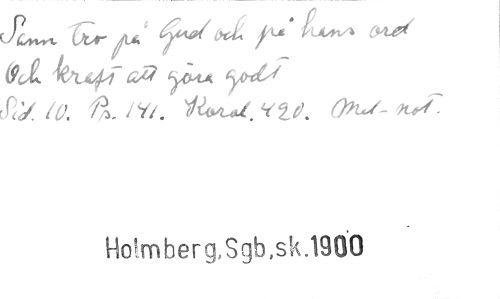 Sann tro på Gud och på hans ord
Och kraft att göra godt
Sid. 10. Ps. 141. Koral. 420. Mel-not.
Holmberg,Sgb,sk.1900